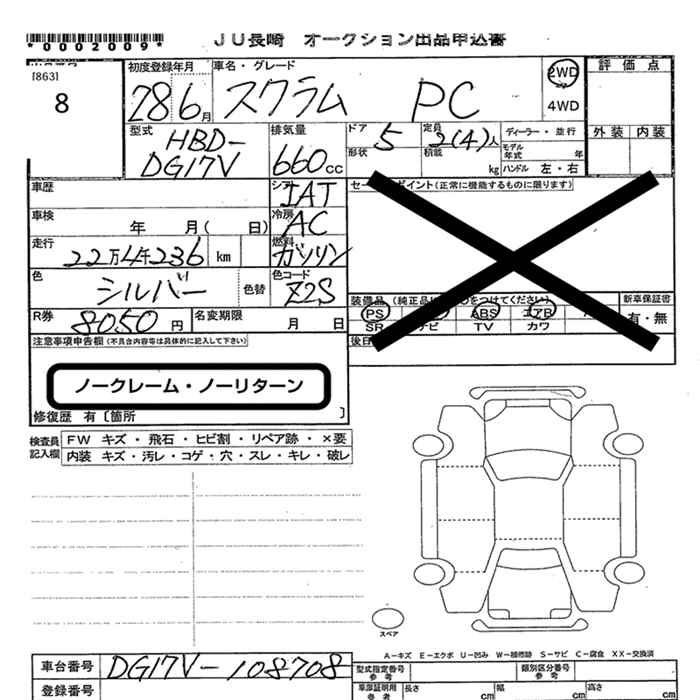 *0002009* JU長崎 オークション出品申込書
[863]
8
初度登録年月 車名・グレード 評価点
28年6月 スクラム PC 2WD
4WD
型式 HBD-DG17V 排気量 660cc ドア 5 定員 2(4)人 ディーラー・並行 外装 内装
形状 積載 kg モデル年式 年
ハンドル 左・右
車歴 シフト IAT セールスポイント(正常に機能するものに限ります)
車検 年 月( 日) 冷房 AC
走行 22万4千236 km 燃料 ガソリン
色 シルバー 色替 色コード Z2S
装備品 (純正品 ○をつけてください) 新車保証書
PS ABS エアB 有・無
SR ナビ TV カワ
R券 8050円 名変期限 月 日
注意事項申告欄(不具合内容等は具体的に記入して下さい) 後日
ノークレーム・ノーリターン
修復歴 有〔箇所 〕
検査員記入欄 FW キズ・飛石・ヒビ割・リペア跡・×要
内装 キズ・汚レ・コゲ・穴・スレ・キレ・破レ
スペア
A-キズ E-エクボ U-凹み W-補修跡 S-サビ C-腐食 XX-交換済
車台番号 DG17V-108708 型式指定番号 参考 類別区分番号 参考
登録番号 車庫証明用 参考 長さ cm 幅 cm 高さ cm